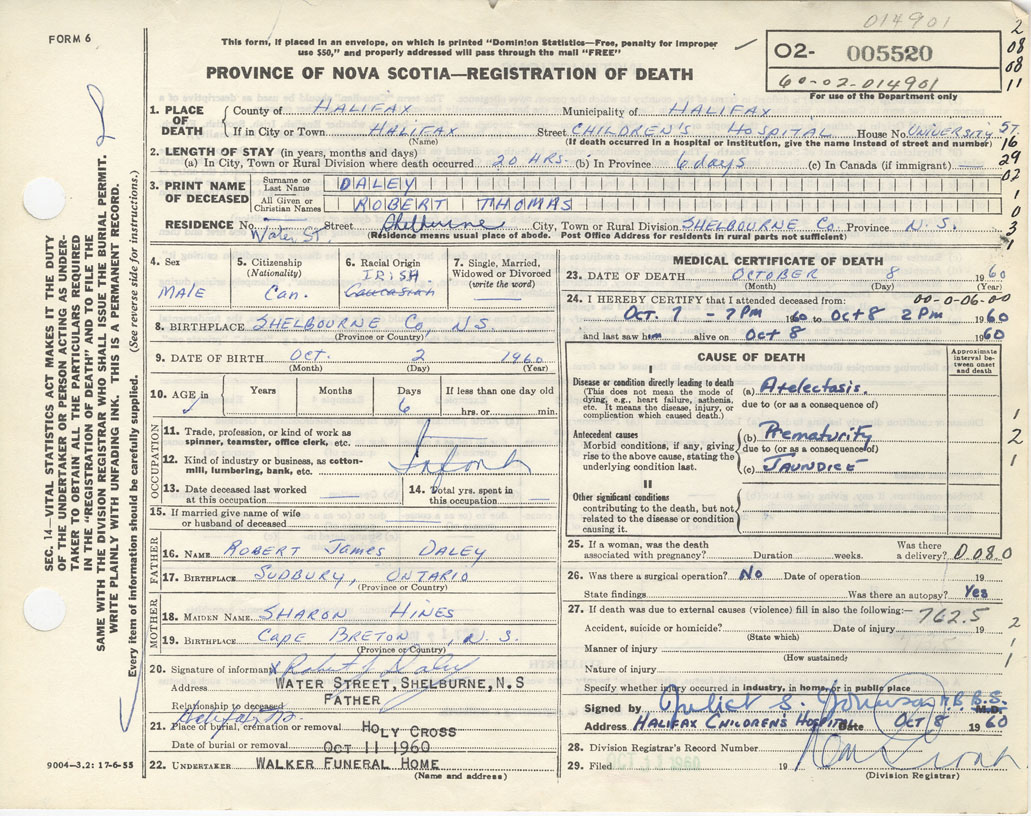 014901
FORM 6
This form, if placed in an envelope, on which is printed "Dominion Statistics—Free, penalty for improper
use $50," and properly addressed will pass through the mail "FREE"
O2- 005520
60-02-014901
For use of the Department only
PROVINCE OF NOVA SCOTIA—REGISTRATION OF DEATH
2
08
08
11
57
16
29
02
1
0
3
1
SEC. 14—VITAL STATISTICS ACT MAKES IT THE DUTY
OF THE UNDERTAKER OR PERSON ACTING AS UNDER-
TAKER TO OBTAIN ALL THE PARTICULARS REQUIRED
IN THE "REGISTRATION OF DEATH" AND TO FILE THE
SAME WITH THE DIVISION REGISTRAR WHO SHALL ISSUE THE BURIAL PERMIT.
WRITE PLAINLY WITH UNFADING INK. THIS IS A PERMANENT RECORD.
Every item of information should be carefully supplied. (See reverse side for instructions.)
1. PLACE OF DEATH
County of HALIFAX Municipality of HALIFAX
If in City or Town HALIFAX Street CHILDREN'S HOSPITAL House No. UNIVERSITY
(Name) (If death occurred in a hospital or institution, give the name instead of street and number)
2. LENGTH OF STAY (in years, months and days)
(a) In City, Town or Rural Division where death occurred 20 HRS. (b) In Province 6 days (c) In Canada (if immigrant) —
3. PRINT NAME OF DECEASED
Surname or Last Name DALEY
All Given or Christian Names ROBERT THOMAS
RESIDENCE No. — Water St. Street Shelburne City, Town or Rural Division SHELBOURNE Co. Province N. S.
(Residence means usual place of abode. Post Office Address for residents in rural parts not sufficient)
4. Sex
MALE
5. Citizenship
(Nationality)
Can.
6. Racial Origin
IRISH
Caucasian
7. Single, Married,
Widowed or Divorced
(write the word)
—
8. BIRTHPLACE SHELBOURNE Co, N.S.
(Province or Country)
9. DATE OF BIRTH Oct. 2 1960
(Month) (Day) (Year)
10. AGE in
Years Months Days If less than one day old
6 hrs. or min.
OCCUPATION
11. Trade, profession, or kind of work as
spinner, teamster, office clerk, etc.
12. Kind of industry or business, as cotton-
mill, lumbering, bank, etc.
Infant
13. Date deceased last worked
at this occupation —
14. Total yrs. spent in
this occupation —
15. If married give name of wife
or husband of deceased —
FATHER
16. NAME ROBERT James DALEY
17. BIRTHPLACE SUDBURY, ONTARIO
(Province or Country)
MOTHER
18. MAIDEN NAME SHARON HINES
19. BIRTHPLACE CAPE BRETON, N. S.
(Province or Country)
20. Signature of informant X Robert J Daley
Address WATER STREET, SHELBURNE, N.S
Relationship to deceased FATHER
Halifax NS.
21. Place of burial, cremation or removal HOLY CROSS
Date of burial or removal OCT 11 1960
22. UNDERTAKER WALKER FUNERAL HOME
(Name and address)
9004—3.2: 17-6-55
MEDICAL CERTIFICATE OF DEATH
23. DATE OF DEATH OCTOBER 8 1960
(Month) (Day) (Year)
24. I HEREBY CERTIFY that I attended deceased from: 00-0-06-00
Oct. 7 - 7 PM 1960 to Oct 8 2 PM 1960
and last saw him alive on Oct 8 1960
CAUSE OF DEATH
Approximate
interval be-
tween onset
and death
I
Disease or condition directly leading to death
(This does not mean the mode of
dying, e.g., heart failure, asthenia,
etc. It means the disease, injury, or
complication which caused death.)
(a) Atelectasis.
due to (or as a consequence of)
Antecedent causes
Morbid conditions, if any, giving
rise to the above cause, stating the
underlying condition last.
(b) Prematurity
due to (or as a consequence of)
(c) JAUNDICE
1
2
1
II
Other significant conditions
contributing to the death, but not
related to the disease or condition
causing it.
25. If a woman, was the death
associated with pregnancy? Duration weeks. Was there
a delivery? 0.080
26. Was there a surgical operation? No Date of operation 19
State findings Was there an autopsy? Yes
27. If death was due to external causes (violence) fill in also the following:— 762.5
Accident, suicide or homicide? Date of injury 19
(State which)
Manner of injury
(How sustained)
Nature of injury
Specify whether injury occurred in industry, in home, or in public place
2
1
1
Signed by Juliet S. M.B.B.S. M.D.
Address HALIFAX CHILDREN'S HOSPITAL Date OCT 8 1960
28. Division Registrar's Record Number
29. Filed OCT 11 1960 19
(Division Registrar)